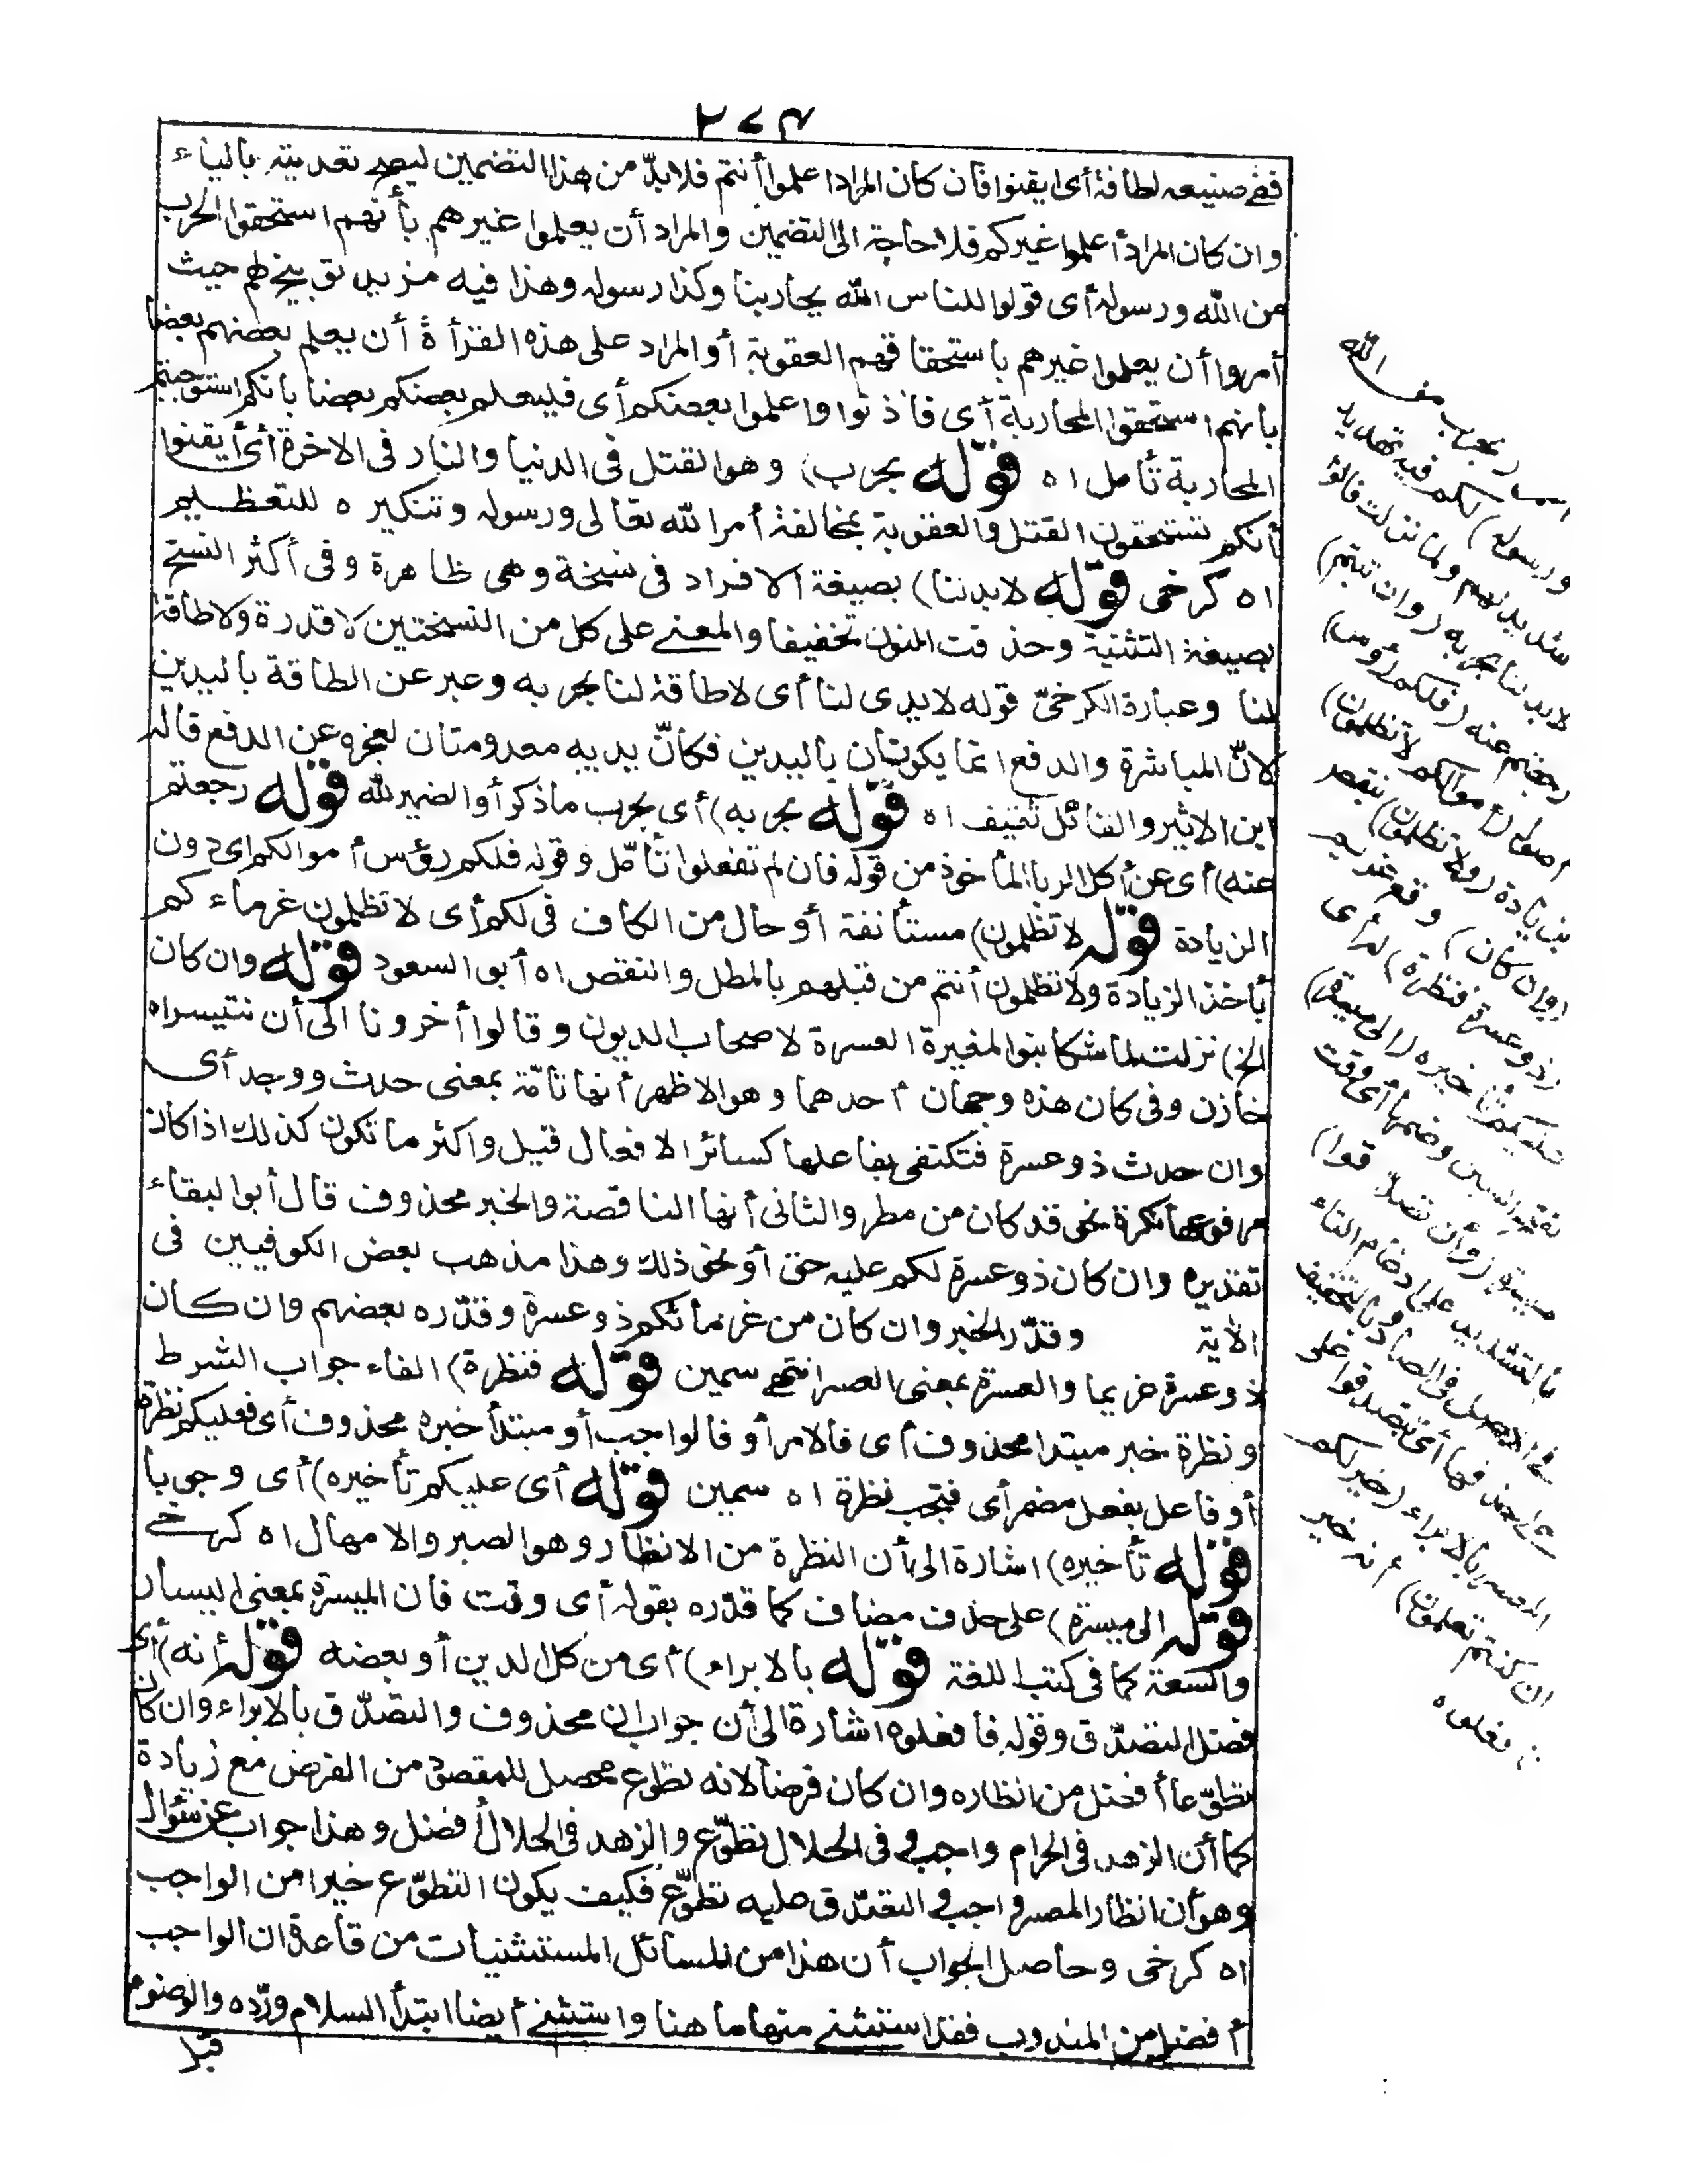 ٢٧٣
ففي صنيعه لطافة أى ايقنوا فان كان المراد اعلموا أنتم فلا بدّ من هذا التضمين ليصح تعديته بالباء
وان كان المراد أعلموا غيركم فلا حاجة الى التضمين والمراد أن يعلموا غيرهم بأنهم استحقوا الحرب
من الله ورسوله أى قولوا للناس الله يحاربنا وكذا رسوله وهذا فيه مزيد توبيخ لهم حيث
أمروا أن يعلموا غيرهم باستحقاقهم العقوبة أو المراد على هذه القرأة أن يعلم بعضهم بعضا
بأنهم استحقوا المحاربة أى فأذنوا واعلموا بعضكم أى فليعلم بعضكم بعضا بانكم استوجبتم
المحاربة تأمل اه قوله بحرب) وهو القتل فى الدنيا والنار فى الاخرة أى أيقنوا
أنكم تستحقون القتل والعقوبة بمخالفة أمر الله تعالى ورسوله وتنكيره للتعظيم
اه كرخى قوله لا يد لنا) بصيغة الافراد فى نسخة وهى ظاهرة وفى أكثر النسخ
بصيغة التثنية وحذفت النون تخفيفا والمعنى على كل من النسختين لا قدرة ولا طاقة
لنا وعبارة الكرخىّ قوله لا يدى لنا أى لا طاقة لنا بحربه وعبر عن الطاقة باليدين
لانّ المباشرة والدفع انما يكونان باليدين فكانّ يديه معدومتان لعجزه عن الدفع قاله
ابن الاثير والقائل ثقيف اه قوله بحربه) أى بحرب ما ذكر أو الضمير لله قوله رجعتم
عنه) أى عن أكل الربا المأخوذ من قوله فان لم تفعلوا تأمّل وقوله فلكم رؤس أموالكم اى دون
الزيادة قوله لا تظلمون) مستأنفة أو حال من الكاف فى لكم أى لا تظلمون غرماءكم
بأخذ الزيادة ولا تظلمون أنتم من قبلهم بالمطل والنقص اه أبو السعود قوله وان كان
الخ) نزلت لما شكا بنو المغيرة العسرة لاصحاب الديون وقالوا أخرونا الى أن نتيسر اه
خازن وفى كان هذه وجهان أحدهما وهو الاظهر أنها تامّة بمعنى حدث ووجد أى
وان حدث ذو عسرة فتكتفى بفاعلها كسائر الافعال قيل واكثر ما تكون كذلك اذا كان
مرفوعها نكرة نحو قد كان من مطر والثانى أنها الناقصة والخبر محذوف قال أبو البقاء
تقديره وان كان ذو عسرة لكم عليه حق أو نحو ذلك وهذا مذهب بعض الكوفيين فى
الآية وقدّر الخبر وان كان من غرمائكم ذو عسرة وقدّره بعضهم وان كان
ذو عسرة غريما والعسرة بمعنى العسر انتهى سمين قوله فنظرة) الفاء جواب الشرط
ونظرة خبر مبتدا محذوف أى فالامر أو فالواجب أو مبتدأ خبره محذوف أى فعليكم نظرة
أو فاعل بفعل مضمر أى فتجب نظرة اه سمين قوله أى عليكم تأخيره) أى وجوبا
قوله تأخيره) اشارة الى أن النظرة من الانظار وهو الصبر والامهال اه كرخى
قوله الى ميسرة) على حذف مضاف كما قدّره بقوله أى وقت فان الميسرة بمعنى اليسار
والسعة كما فى كتب اللغة قوله بالابراء) أى من كل الدين أو بعضه قوله أنه) أى
فضل التصدّق وقوله فافعلوه اشارة الى أن جواب ان محذوف والتصدّق بالابراء وان كان
تطوّعا أفضل من انظاره وان كان فرضا لانه تطوع محصل للمقصود من الفرض مع زيادة
كما أن الزهد فى الحرام واجب وفى الحلال تطوّع والزهد فى الحلال أفضل وهذا جواب عن سؤال
وهو أن انظار المعسر واجب والتصدّق عليه تطوّع فكيف يكون التطوّع خيرا من الواجب
اه كرخى وحاصل الجواب أن هذا من المسائل المستثنيات من قاعدة ان الواجب
أفضل من المندوب فقد استثنى منها ما هنا واستثنى أيضا ابتدأ السلام وردّه والوضوء
قبل
بحرب من الله
ورسوله) لكم فيه تهديد
شديد لهم ولما نزلت قالوا
لا يد لنا بحربه (وان تبتم)
رجعتم عنه (فلكم رؤس)
أصول (أموالكم لا تظلمون)
بزيادة (ولا تظلمون) بنقص
(وان كان) وقع غريم
(ذو عسرة فنظرة) له أى
عليكم تأخيره (الى ميسرة)
بفتح السين وضمها أى وقت
ميسرة (وأن تصدّقوا)
بالتشديد على ادغام التاء
فى الاصل فى الصاد وبالتخفيف
على حذفها أى تتصدقوا على
المعسر بالابراء (خير لكم
ان كنتم تعلمون) أنه خير
فافعلوه